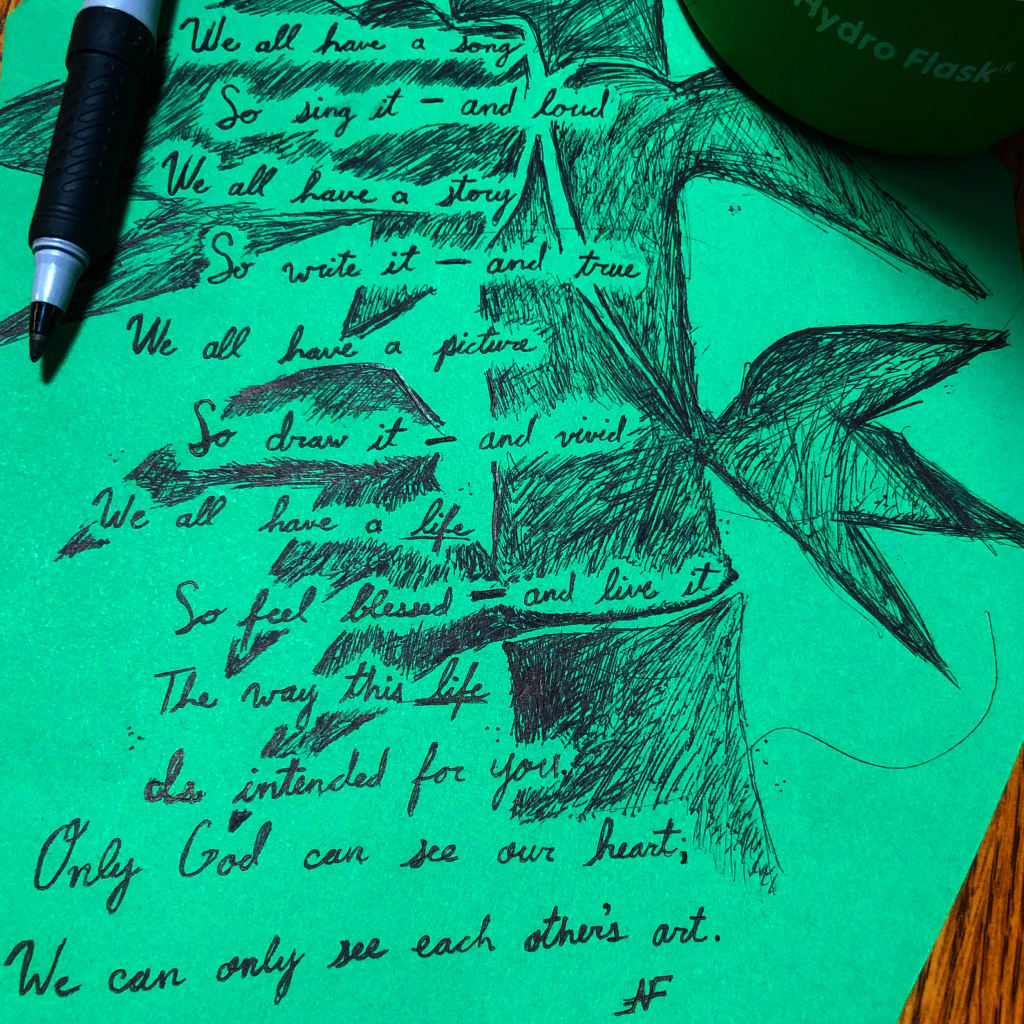 Hydro Flask®
We all have a song
So sing it – and loud
We all have a story
So write it – and true
We all have a picture
So draw it – and vivid
We all have a life
So feel blessed – and live it
The way this life
Is intended for you.
Only God can see our heart;
We can only see each other's art.
NF